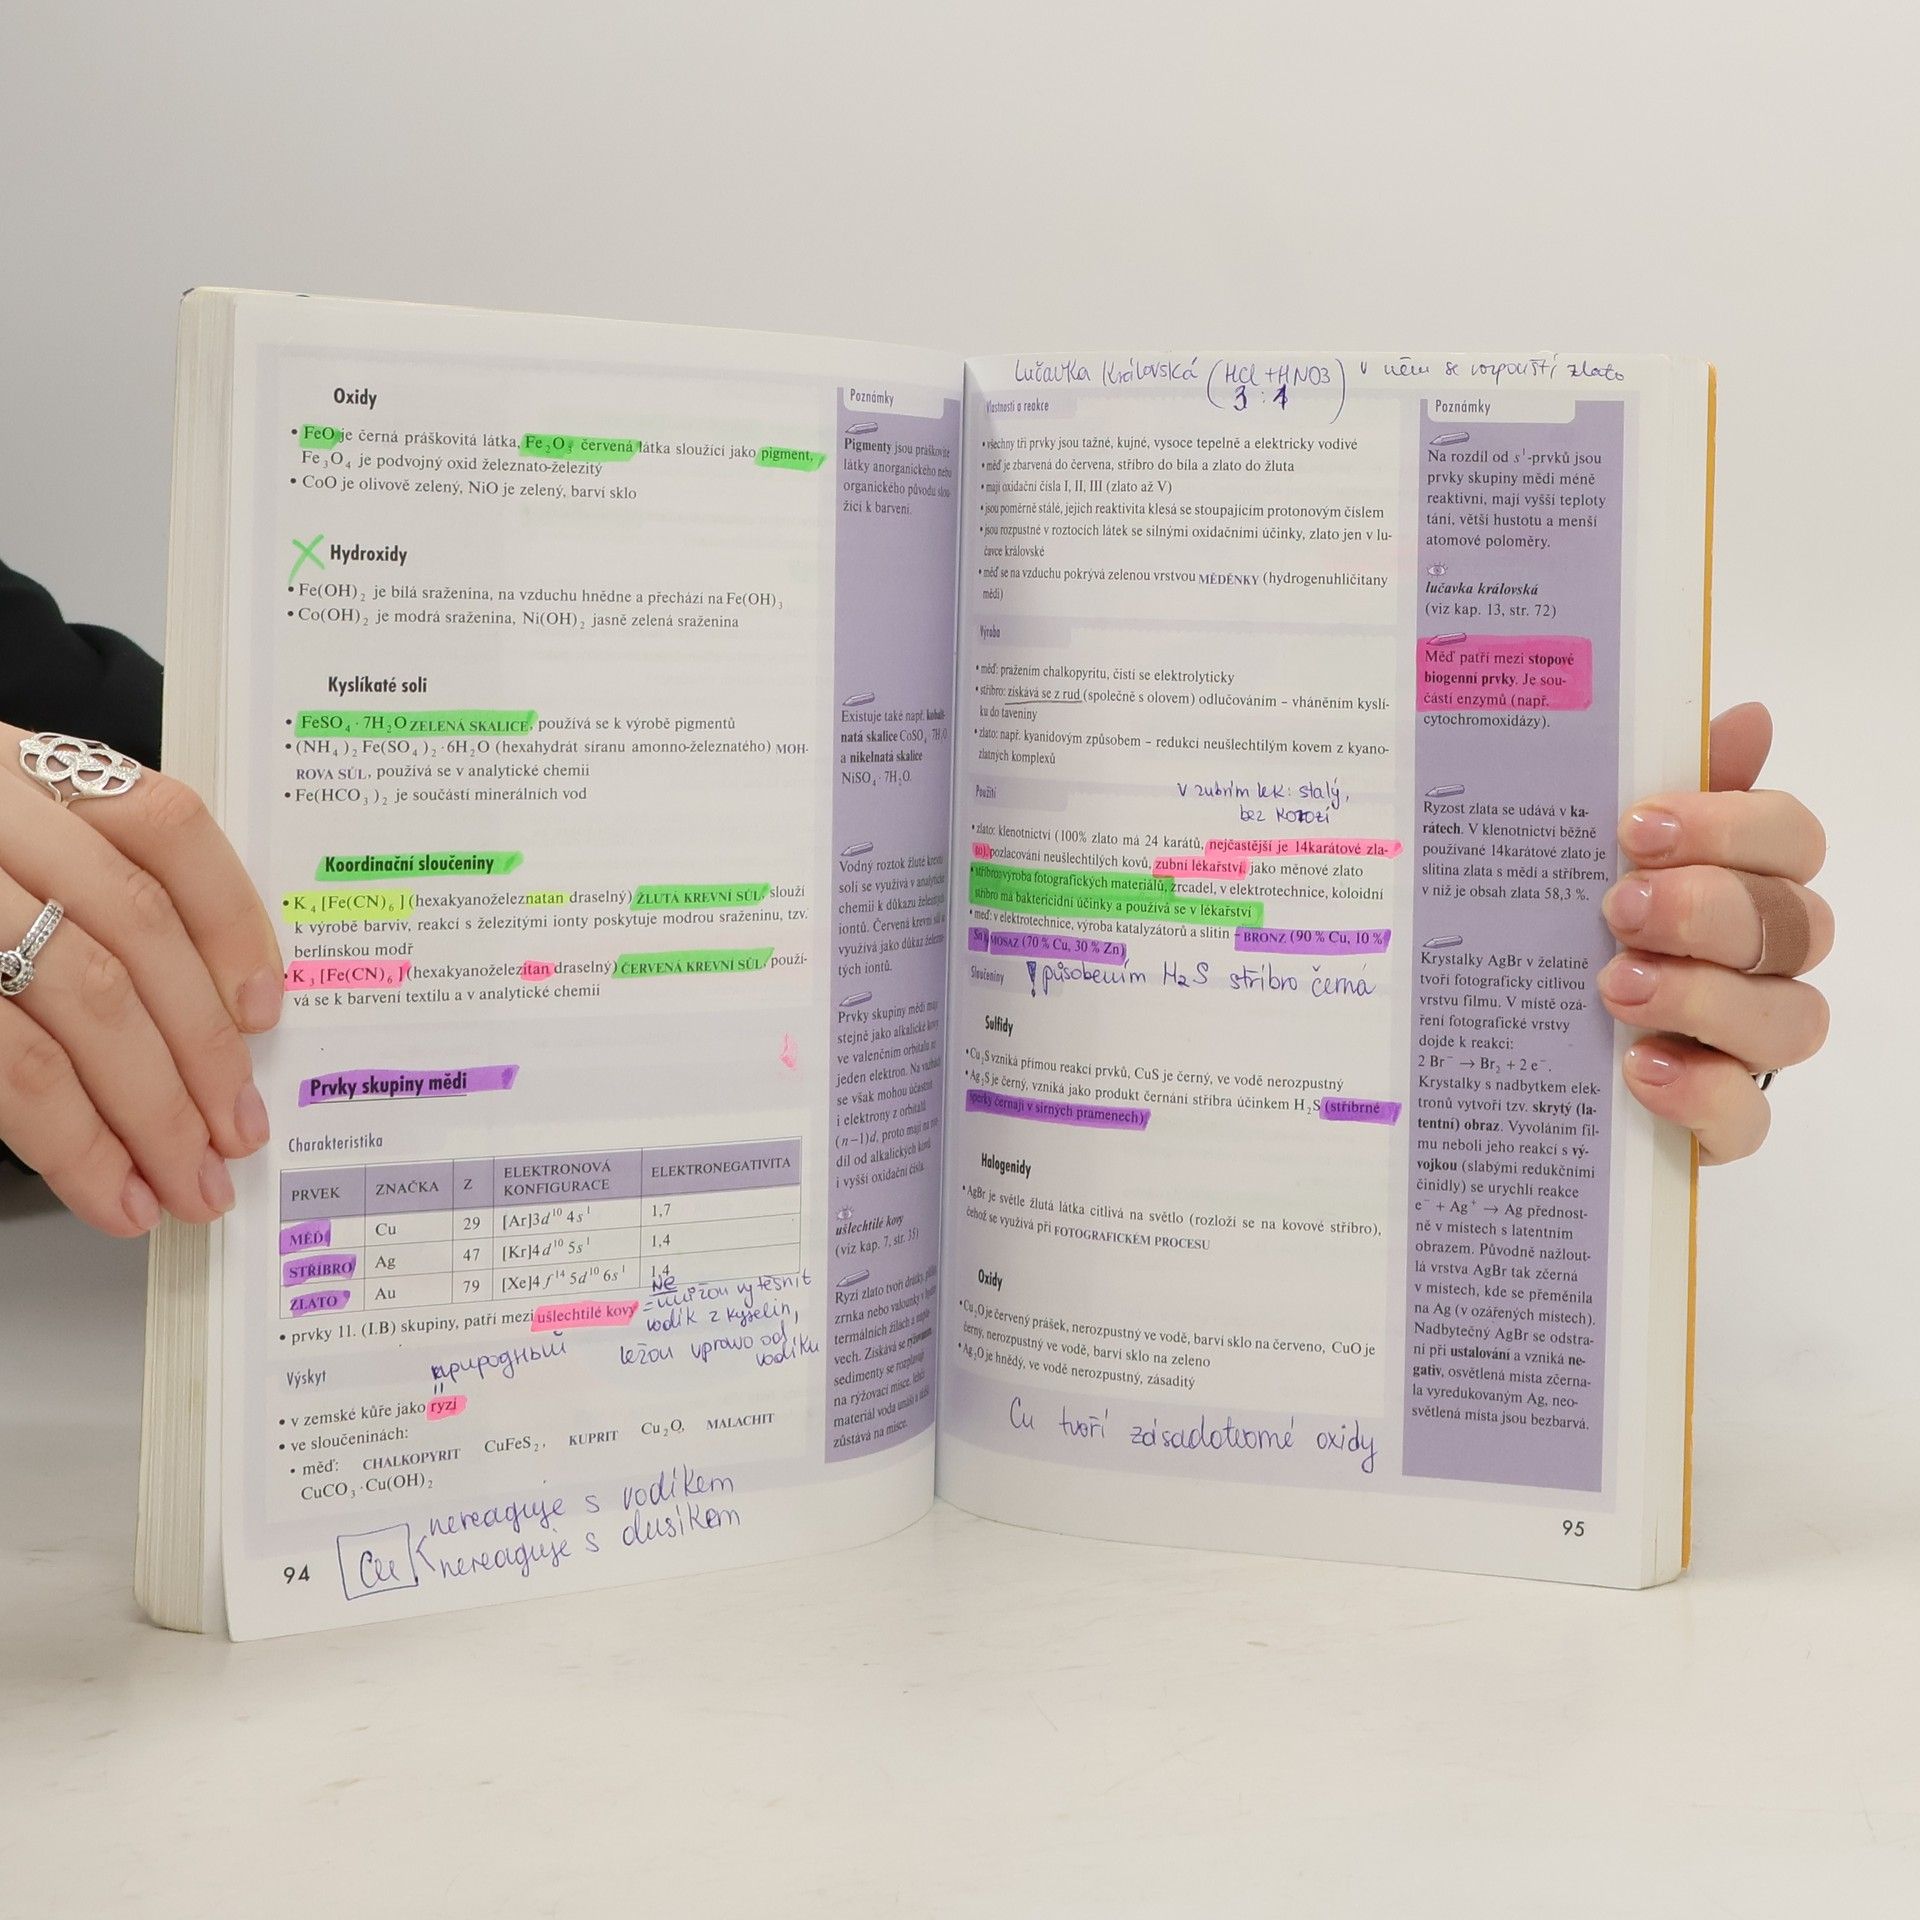 Oxidy
• FeO je černá práškovitá látka, Fe₂O₃ červená látka sloužící jako pigment,
Fe₃O₄ je podvojný oxid železnato-železitý
• CoO je olivově zelený, NiO je zelený, barví sklo
Hydroxidy
• Fe(OH)₂ je bílá sraženina, na vzduchu hnědne a přechází na Fe(OH)₃
• Co(OH)₂ je modrá sraženina, Ni(OH)₂ jasně zelená sraženina
Kyslíkaté soli
• FeSO₄ · 7H₂O ZELENÁ SKALICE, používá se k výrobě pigmentů
• (NH₄)₂Fe(SO₄)₂·6H₂O (hexahydrát síranu amonno-železnatého) MOH-
ROVA SŮL, používá se v analytické chemii
• Fe(HCO₃)₂ je součástí minerálních vod
Koordinační sloučeniny
• K₄[Fe(CN)₆] (hexakyanoželeznatan draselný) ŽLUTÁ KREVNÍ SŮL, slouží
k výrobě barviv, reakcí s železitými ionty poskytuje modrou sraženinu, tzv.
berlínskou modř
• K₃[Fe(CN)₆] (hexakyanoželezitan draselný) ČERVENÁ KREVNÍ SŮL, použí-
vá se k barvení textilu a v analytické chemii
Prvky skupiny mědi
Charakteristika
PRVEK ZNAČKA Z ELEKTRONOVÁ KONFIGURACE ELEKTRONEGATIVITA
MĚĎ Cu 29 [Ar]3d¹⁰ 4s¹ 1,7
STŘÍBRO Ag 47 [Kr]4d¹⁰ 5s¹ 1,4
ZLATO Au 79 [Xe]4f¹⁴ 5d¹⁰ 6s¹ 1,4
• prvky 11. (I.B) skupiny, patří mezi ušlechtilé kovy
= Ne můžou vytěsnit
vodík z kyselin,
ležou vpravo od
vodíku
Výskyt
природный
• v zemské kůře jako ryzí
• ve sloučeninách:
• měď: CHALKOPYRIT CuFeS₂, KUPRIT Cu₂O, MALACHIT
CuCO₃·Cu(OH)₂
Cu nereaguje s vodíkem
nereaguje s dusíkem
94
Poznámky
Pigmenty jsou práškovité
látky anorganického nebo
organického původu slou-
žící k barvení.
Existuje také např. kobalt-
natá skalice CoSO₄·7H₂O
a nikelnatá skalice
NiSO₄·7H₂O.
Vodný roztok žluté krevní
soli se využívá v analytické
chemii k důkazu železitých
iontů. Červená krevní sůl se
využívá jako důkaz železna-
tých iontů.
Prvky skupiny mědi mají
stejně jako alkalické kovy
ve valenčním orbitalu ns
jeden elektron. Na vazbách
se však mohou účastnit
i elektrony z orbitalů
(n−1)d, proto mají na roz-
díl od alkalických kovů
i vyšší oxidační čísla.
ušlechtilé kovy
(viz kap. 7, str. 35)
Ryzí zlato tvoří drátky,
zrnka nebo valounky v hydro-
termálních žilách a
vech. Získává se rýžováním,
sedimenty se rozplavují
na rýžovací misce, lehčí
materiál voda unáší a těžší
zůstává na misce.
Lučavka Královská (HCl + HNO3) v něm se rozpouští zlato
3 : 1
Vlastnosti a reakce
• všechny tři prvky jsou tažné, kujné, vysoce tepelně a elektricky vodivé
• měď je zbarvená do červena, stříbro do bíla a zlato do žluta
• mají oxidační čísla I, II, III (zlato až V)
• jsou poměrně stálé, jejich reaktivita klesá se stoupajícím protonovým číslem
• jsou rozpustné v roztocích látek se silnými oxidačními účinky, zlato jen v lu-
čavce královské
• měď se na vzduchu pokrývá zelenou vrstvou MĚDĚNKY (hydrogenuhličitany
mědi)
Výroba
• měď: pražením chalkopyritu, čistí se elektrolyticky
• stříbro: získává se z rud (společně s olovem) odlučováním – vháněním kyslí-
ku do taveniny
• zlato: např. kyanidovým způsobem – redukcí neušlechtilým kovem z kyano-
zlatných komplexů
Použití
v zubním lék: stalý,
bez korozí
• zlato: klenotnictví (100% zlato má 24 karátů, nejčastější je 14karátové zla-
to), pozlacování neušlechtilých kovů, zubní lékařství, jako měnové zlato
• stříbro: výroba fotografických materiálů, zrcadel, v elektrotechnice, koloidní
stříbro má baktericidní účinky a používá se v lékařství
• měď: v elektrotechnice, výroba katalyzátorů a slitin – BRONZ (90 % Cu, 10 %
Sn), MOSAZ (70 % Cu, 30 % Zn)
Sloučeniny
! působením H₂S stříbro černá
Sulfidy
• Cu₂S vzniká přímou reakcí prvků, CuS je černý, ve vodě nerozpustný
• Ag₂S je černý, vzniká jako produkt černání stříbra účinkem H₂S (stříbrné
šperky černají v sirných pramenech)
Halogenidy
• AgBr je světle žlutá látka citlivá na světlo (rozloží se na kovové stříbro),
čehož se využívá při FOTOGRAFICKÉM PROCESU
Oxidy
• Cu₂O je červený prášek, nerozpustný ve vodě, barví sklo na červeno, CuO je
černý, nerozpustný ve vodě, barví sklo na zeleno
• Ag₂O je hnědý, ve vodě nerozpustný, zásaditý
Cu tvoří zásadotvorné oxidy
Poznámky
Na rozdíl od s¹-prvků jsou
prvky skupiny mědi méně
reaktivní, mají vyšší teploty
tání, větší hustotu a menší
atomové poloměry.
lučavka královská
(viz kap. 13, str. 72)
Měď patří mezi stopové
biogenní prvky. Je sou-
částí enzymů (např.
cytochromoxidázy).
Ryzost zlata se udává v ka-
rátech. V klenotnictví běžně
používané 14karátové zlato je
slitina zlata s mědí a stříbrem,
v níž je obsah zlata 58,3 %.
Krystalky AgBr v želatině
tvoří fotograficky citlivou
vrstvu filmu. V místě ozá-
ření fotografické vrstvy
dojde k reakci:
2 Br⁻ → Br₂ + 2 e⁻.
Krystalky s nadbytkem elek-
tronů vytvoří tzv. skrytý (la-
tentní) obraz. Vyvoláním fil-
mu neboli jeho reakcí s vý-
vojkou (slabými redukčními
činidly) se urychlí reakce
e⁻ + Ag⁺ → Ag přednost-
ně v místech s latentním
obrazem. Původně nažlout-
lá vrstva AgBr tak zčerná
v místech, kde se přeměnila
na Ag (v ozářených místech).
Nadbytečný AgBr se odstra-
ní při ustalování a vzniká ne-
gativ, osvětlená místa zčerna-
la vyredukovaným Ag, neo-
světlená místa jsou bezbarvá.
95